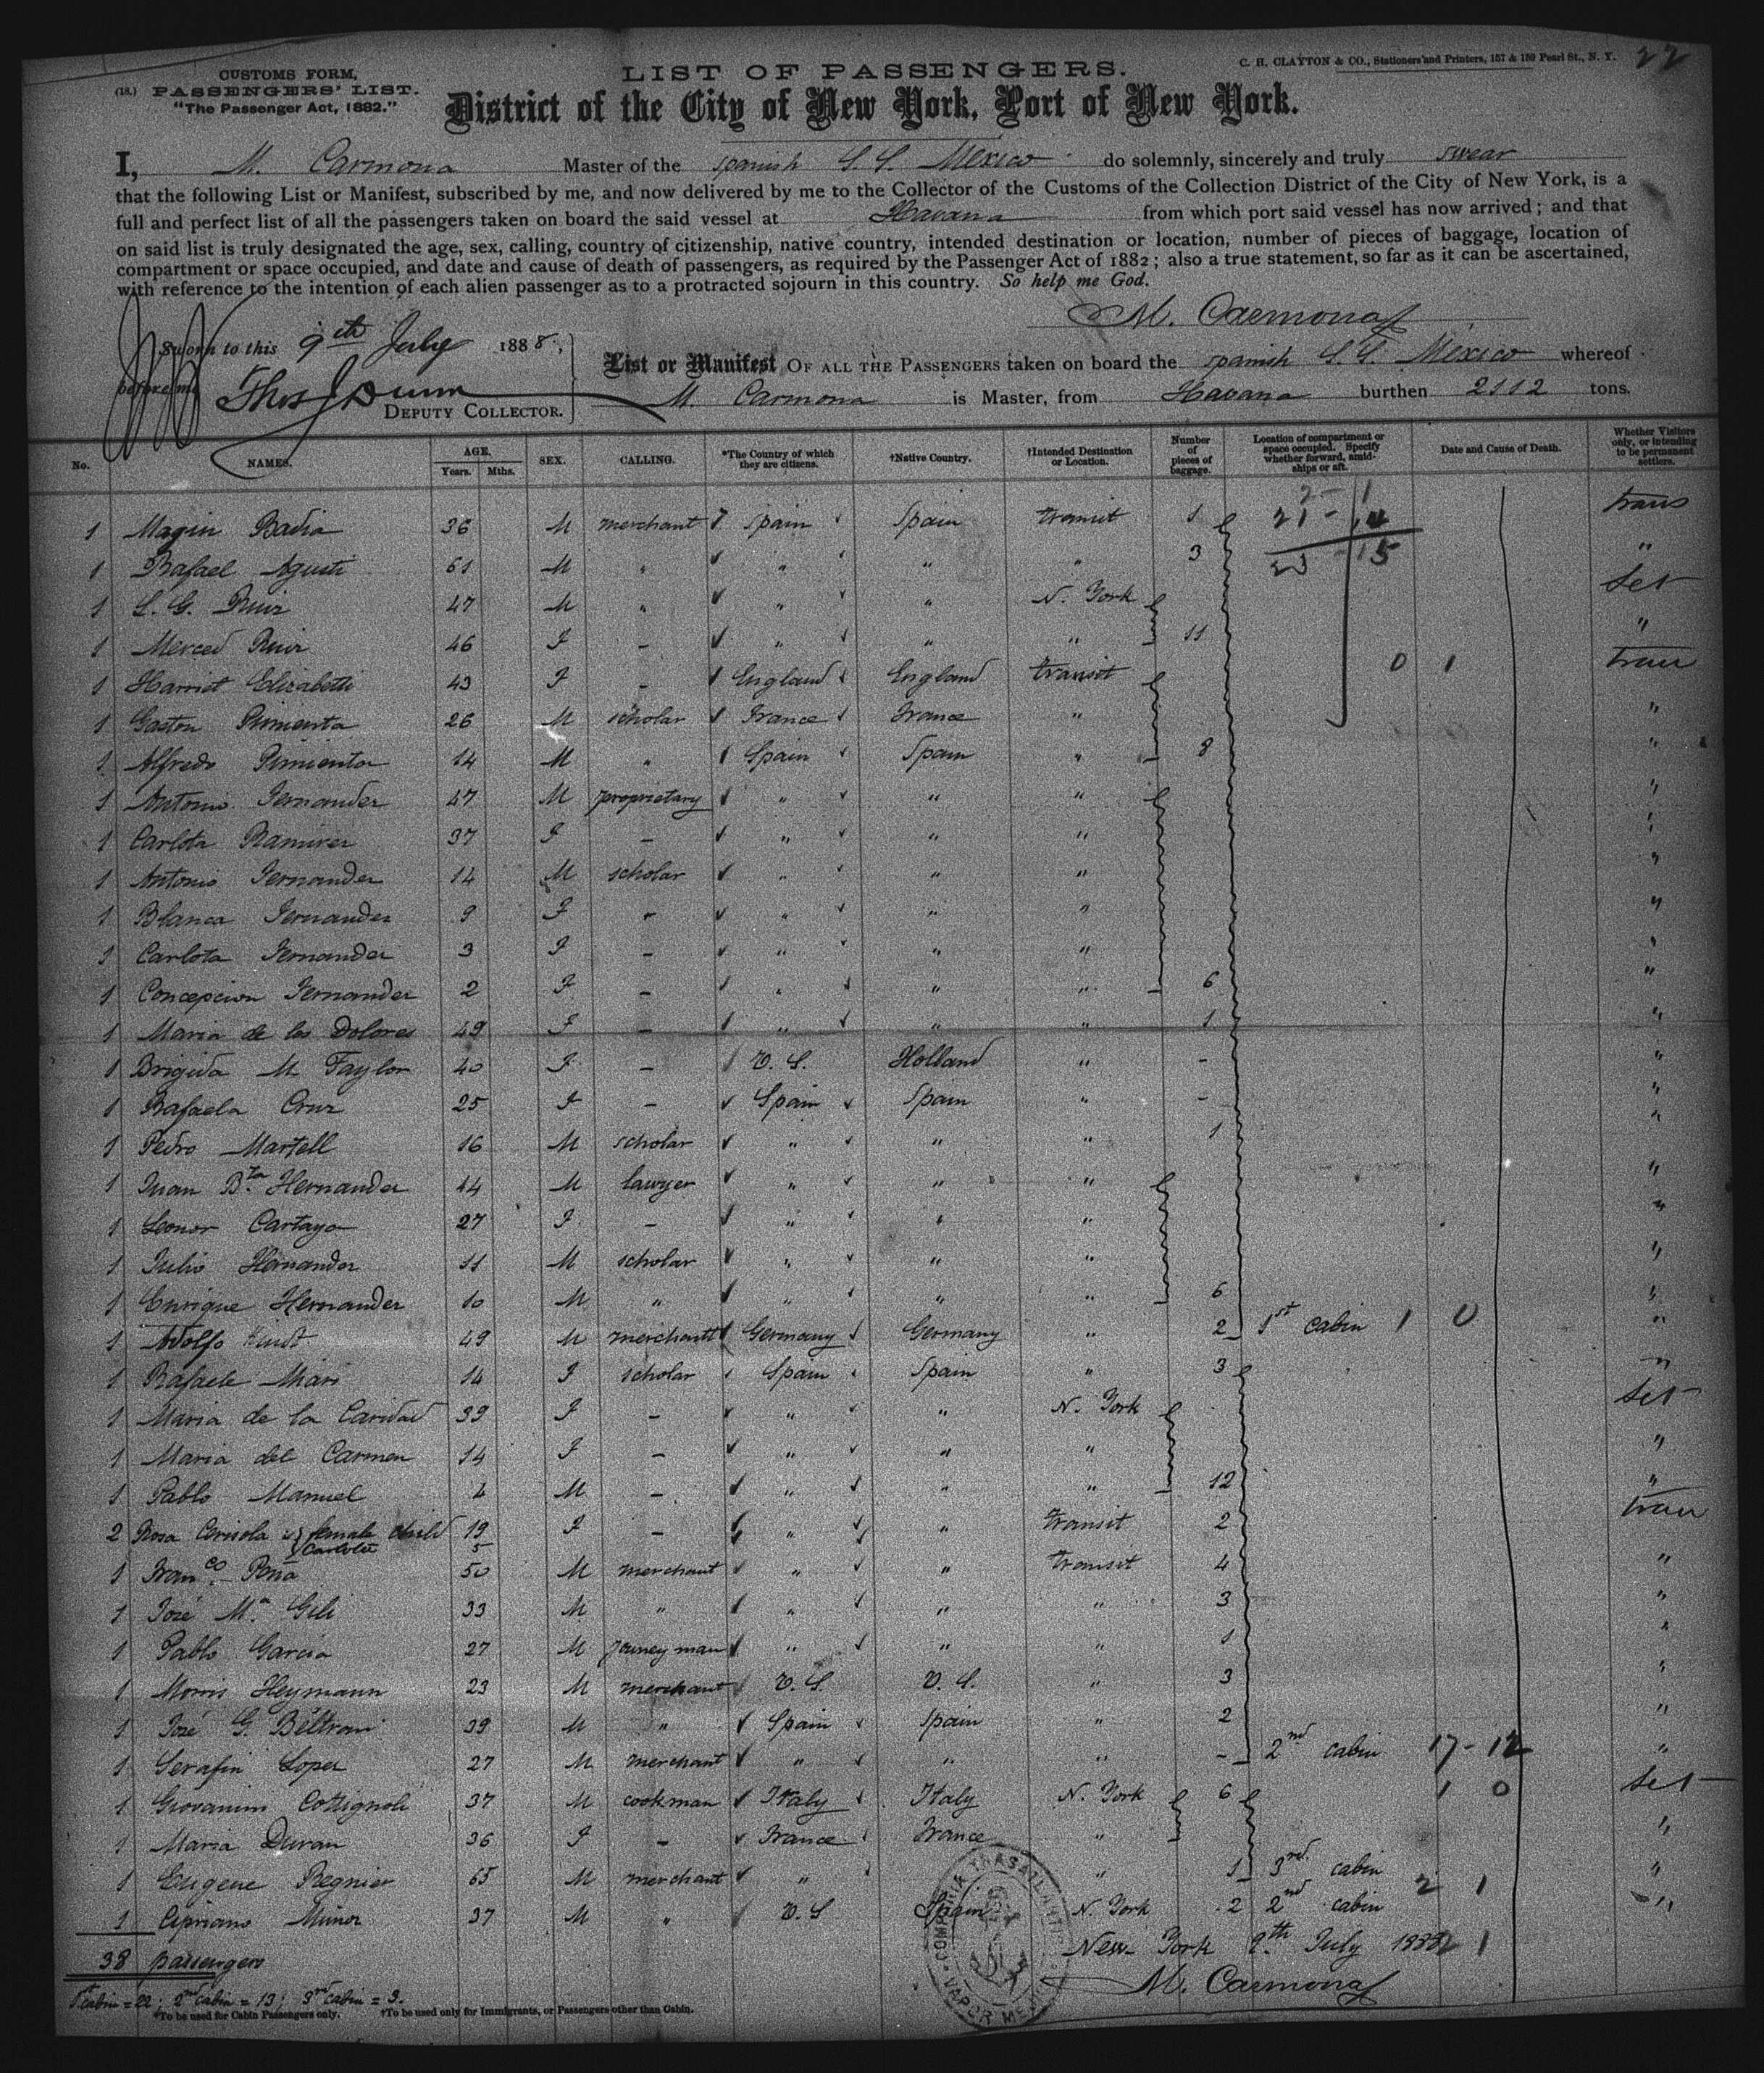 22
C. H. CLAYTON & CO., Stationers and Printers, 157 & 159 Pearl St., N. Y.
CUSTOMS FORM,
(18.) PASSENGERS' LIST.
"The Passenger Act, 1882."
LIST OF PASSENGERS.
District of the City of New York, Port of New York.
I, M. Carmona Master of the spanish S. S. Mexico do solemnly, sincerely and truly swear
that the following List or Manifest, subscribed by me, and now delivered by me to the Collector of the Customs of the Collection District of the City of New York, is a
full and perfect list of all the passengers taken on board the said vessel at Havana from which port said vessel has now arrived; and that
on said list is truly designated the age, sex, calling, country of citizenship, native country, intended destination or location, number of pieces of baggage, location of
compartment or space occupied, and date and cause of death of passengers, as required by the Passenger Act of 1882; also a true statement, so far as it can be ascertained,
with reference to the intention of each alien passenger as to a protracted sojourn in this country. So help me God.
M. Carmona
Sworn to this 9th July 1888,
before me Thos J Dunn
DEPUTY COLLECTOR.
List or Manifest OF ALL THE PASSENGERS taken on board the spanish S. S. Mexico whereof
M. Carmona is Master, from Havana burthen 2112 tons.
No. NAMES. AGE. Years. Mths. SEX. CALLING. *The Country of which they are citizens. †Native Country. †Intended Destination or Location. Number of pieces of baggage. Location of compartment or space occupied. Specify whether forward, amidships or aft. Date and Cause of Death. Whether Visitors only, or intending to be permanent settlers.
1 Magin Badia 36 M merchant Spain Spain transit 1 trans
1 Rafael Agusti 61 M " " " " 3 "
1 S. G. Ruiz 47 M " " " N. York set
1 Merced Ruiz 46 F – " " " 11 "
1 Harriet Elizabeth 43 F – England England transit 0 1 tran
1 Gaston Pimienta 26 M scholar France France " "
1 Alfredo Pimienta 14 M " Spain Spain " 8 "
1 Antonio Fernandez 47 M proprietary " " " "
1 Carlota Ramirez 37 F – " " " "
1 Antonio Fernandez 14 M scholar " " " "
1 Blanca Fernandez 9 F – " " " "
1 Carlota Fernandez 3 F – " " " "
1 Concepcion Fernandez 2 F – " " " 6 "
1 Maria de los Dolores 49 F – " " " 1 "
1 Brigida M Taylor 40 F – U. S. Holland " – "
1 Rafaela Cruz 25 F – Spain Spain " – "
1 Pedro Martell 16 M scholar " " " 1 "
1 Juan Bta Hernandez 44 M lawyer " " " "
1 Leonor Cartaya 27 F – " " " "
1 Julio Hernandez 11 M scholar " " " "
1 Enrique Hernandez 10 M " " " " 6 "
1 Adolfo 49 M merchant Germany Germany " 2 1st cabin 1 0 "
1 Rafaele Mari 14 F scholar Spain Spain " 3 "
1 Maria de la Caridad 39 F – " " N. York set
1 Maria del Carmen 14 F – " " " "
1 Pablo Manuel 4 M – " " " 12 "
2 Rosa female child 19 F – " " transit 2 tran
Carlota 5
1 Franco Peña 50 M merchant " " transit 4 "
1 José Ma Gili 33 M " " " " 3 "
1 Pablo Garcia 27 M jouney man " " " 1 "
1 Morris Heymann 23 M merchant U. S. U. S. " 3 "
1 José G. Beltran 39 M " Spain Spain " 2 "
1 Serafin Lopez 27 M merchant " " " – 2nd cabin 17-12 "
1 Giovanini Cottignoli 37 M cookman Italy Italy N. York 6 1 0 set
1 Maria Duran 36 F – France France " "
1 Eugene Regnier 65 M merchant " " 1 3rd cabin 2 1 "
1 Cipriano Munoz 37 M " U. S Spain N. York 2 2nd cabin "
38 passengers
New York 9th July 1888 2 1
M. Carmona
1st cabin = 22; 2nd cabin = 13; 3rd cabin = 3.
*To be used for Cabin Passengers only. †To be used only for Immigrants, or Passengers other than Cabin.